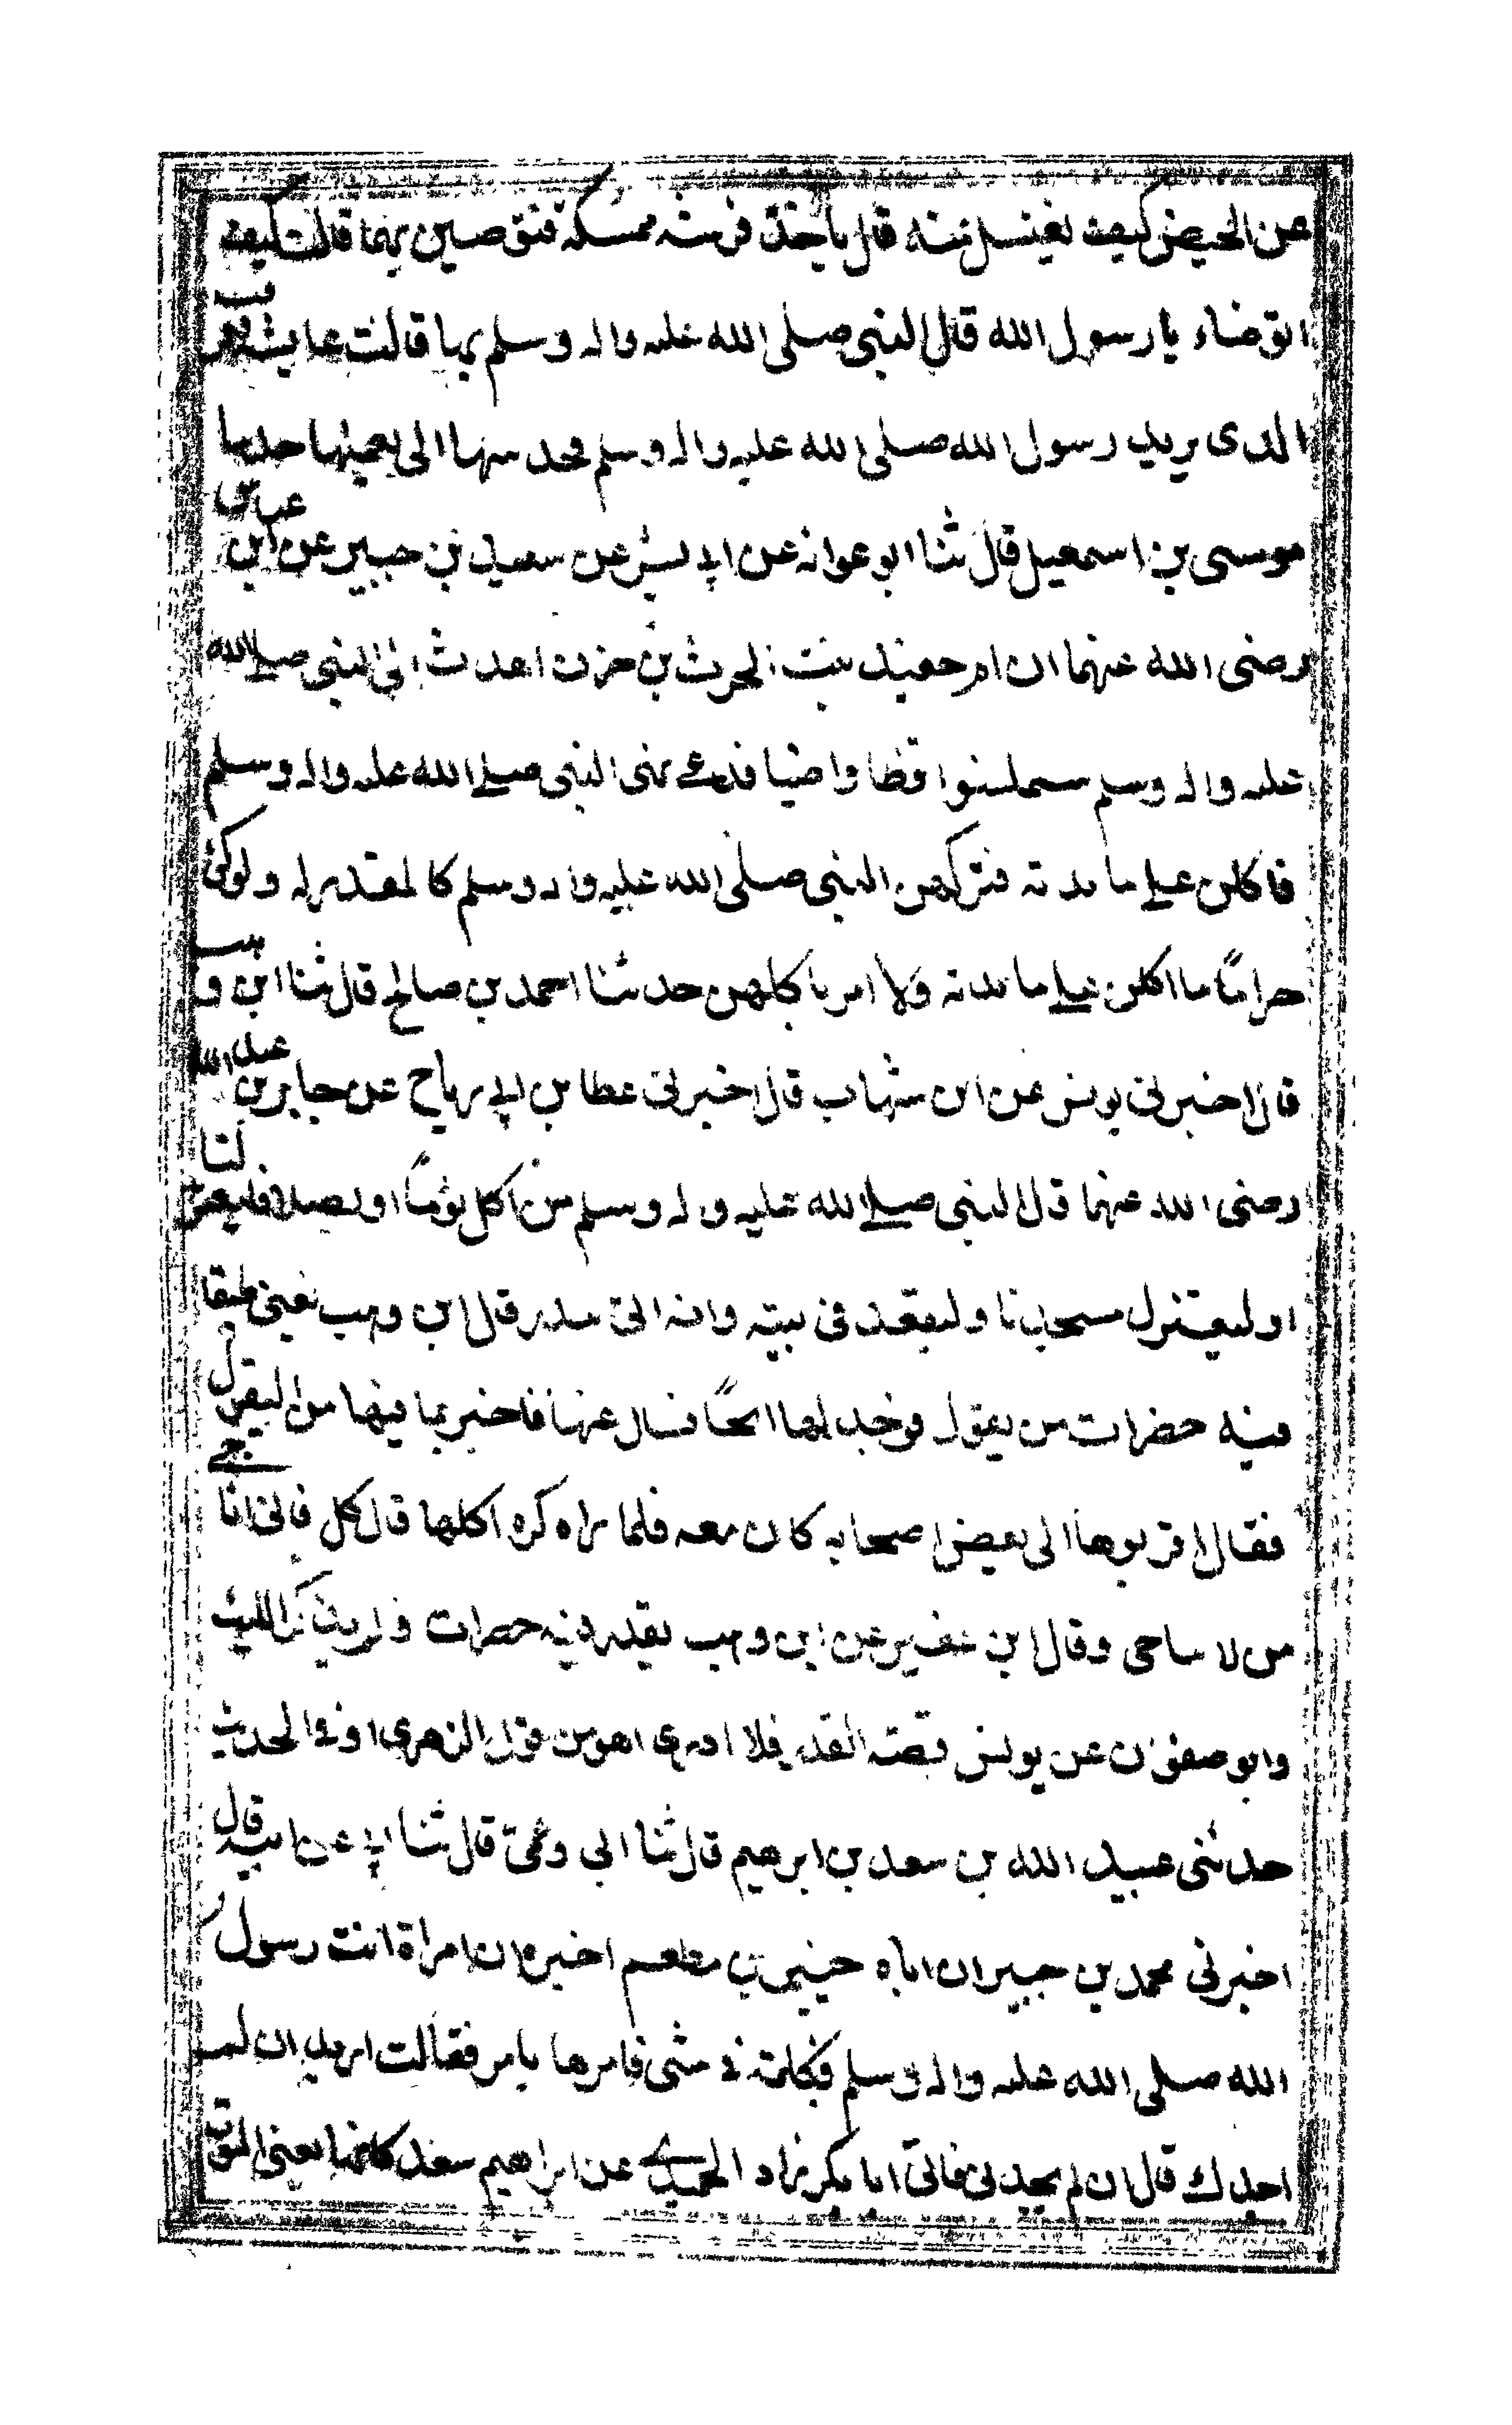 عن الحيض كيف تغتسل منه قال تأخذي فرصة ممسكة فتوضين بها قالت كيف
اتوضاء يا رسول الله قال النبي صلى الله عليه واله وسلم بها قالت عايشة فعرفت
الذى يريد رسول الله صلى الله عليه واله وسلم فجذبتها الى فعلمتها حدثنا
موسى بن اسمعيل قال ثنا ابو عوانه عن ابي بشر عن سعيد بن جبير عن ابن عباس
رضى الله عنهما ان ام حفيد بنت الحرث بن حزن اهدت الى النبي صلى الله
عليه واله وسلم سمنا واقطا واضبا فدعى بهن النبي صلى الله عليه واله وسلم
فاكلن على مائدته فتركهن النبي صلى الله عليه واله وسلم كالمقذر له ولوكن
حراما ما اكلن على مائدته ولا امر باكلهن حدثنا احمد بن صالح قال ثنا ابن وهب
قال اخبرني يونس عن ابن شهاب قال اخبرني عطا بن ابي رباح عن جابر بن عبد الله
رضى الله عنهما قال النبي صلى الله عليه واله وسلم من اكل ثوما او بصلا فليعتزلنا
او ليعتزل مسجدنا وليقعد في بيته وانه اتى ببدر قال ابن وهب يعني طبقا
فيه خضرات من بقول فوجد لها ريحا فسال عنها فاخبر بما فيها من البقول
فقال قربوها الى بعض اصحابه كان معه فلما راه كره اكلها قال كل فاني اناجي
من لا تناجى وقال ابن عفير عن ابن وهب بقدر فيه خضرات ولم يذكر الليث
وابو صفوان عن يونس قصة القدر فلا ادري اهو من قول الزهري او في الحديث
حدثني عبيد الله بن سعد بن ابرهيم قال ثنا ابي وعمي قال ثنا ابي عن ابيه قال
اخبرني محمد بن جبير ان اباه جبير بن مطعم اخبره ان امراة اتت رسول
الله صلى الله عليه واله وسلم فكلمته في شى فامرها بامر فقالت ارايت ان لم
اجدك قال ان لم تجديني فاتي ابا بكر زاد الحميدي عن ابراهيم سعد كانها تعني الموت